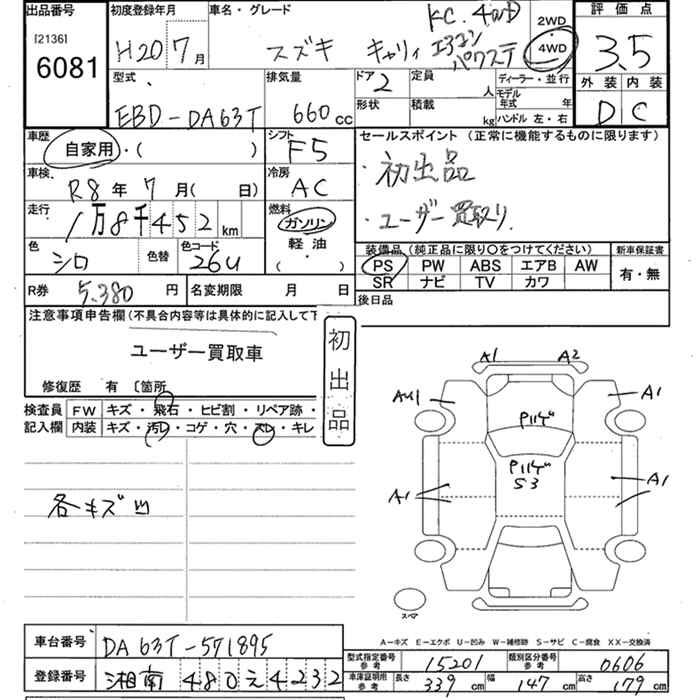 出品番号 初度登録年月 車名・グレード KC. 4WD 2WD 評価点
[2136] H20年7月 スズキ キャリィ エアコン パワステ 4WD 3.5
6081
型式 排気量 ドア 定員 人 ディーラー・並行 外装 内装
EBD-DA63T 660cc 2 モデル年式 年
形状 積載 kg ハンドル 左・右 D C
車歴 自家用・( ) シフト F5 セールスポイント (正常に機能するものに限ります)
車検 R8年7月( 日) 冷房 AC ・初出品
走行 1万8千452km 燃料 ガソリン ・ユーザー買取り.
軽油
( )
色 シロ 色替 色コード 26U 装備品 (純正品に限り〇をつけてください) 新車保証書
PS PW ABS エアB AW 有・無
SR ナビ TV カワ
R券 5,380円 名変期限 月 日 後日品
注意事項申告欄(不具合内容等は具体的に記入して下
ユーザー買取車
修復歴 有 〔箇所
初出品
検査員 FW キズ・飛石・ヒビ割・リペア跡・
記入欄 内装 キズ・汚レ・コゲ・穴・スレ・キレ
各キズ凹
A1 A2
AU1 A1
Pハゲ
Pハゲ
S3
A1 A1
スペア
A-キズ E-エクボ U-凹み W-補修跡 S-サビ C-腐食 XX-交換済
車台番号 DA63T-571895
型式指定番号 参考 15201 類別区分番号 参考 0606
登録番号 湘南 480 え 4232
車庫証明用 参考 長さ 339cm 幅 147cm 高さ 179cm